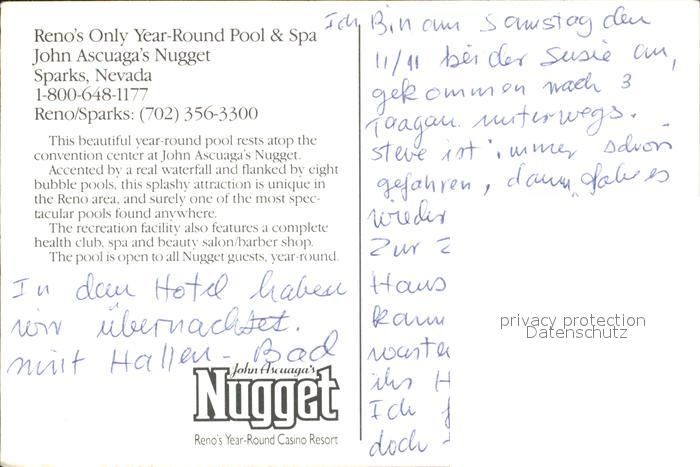 Reno's Only Year-Round Pool & Spa
John Ascuaga's Nugget
Sparks, Nevada
1-800-648-1177
Reno/Sparks: (702) 356-3300
This beautiful year-round pool rests atop the
convention center at John Ascuaga's Nugget.
Accented by a real waterfall and flanked by eight
bubble pools, this splashy attraction is unique in
the Reno area, and surely one of the most spec-
tacular pools found anywhere.
The recreation facility also features a complete
health club, spa and beauty salon/barber shop.
The pool is open to all Nugget guests, year-round.
In dem Hotel haben
wir übernachtet.
mit Hallen-Bad
John Ascuaga's
Nugget
Reno's Year-Round Casino Resort
Ich Bin am Samstag den
11/11 bei der Susie an,
gekommen nach 3
Taagan unterwegs.
Steve ist immer schon
gefahren, dann gab es
wieder
Zur
Haus
kann
ihs H
Ich
doch
privacy protection
Datenschutz